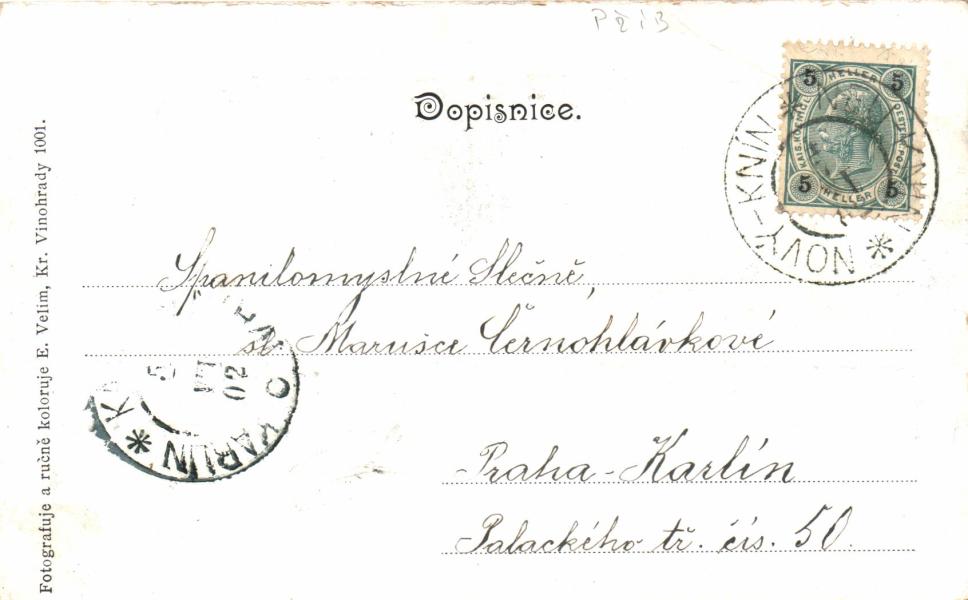 Dopisnice.
5 HELLER 5
KAIS. KOENIGL. OESTERR. POST
5 HELLER 5
NOVÝ-KNÍN
Spanilomyslné Slečně,
sl. Marušce Černohlávkové
Praha-Karlín
Palackého tř. čís. 50.
KAROLINENTHAL
VII
02
KARLÍN
Fotografuje a ručně koloruje E. Velim, Kr. Vinohrady 1001.